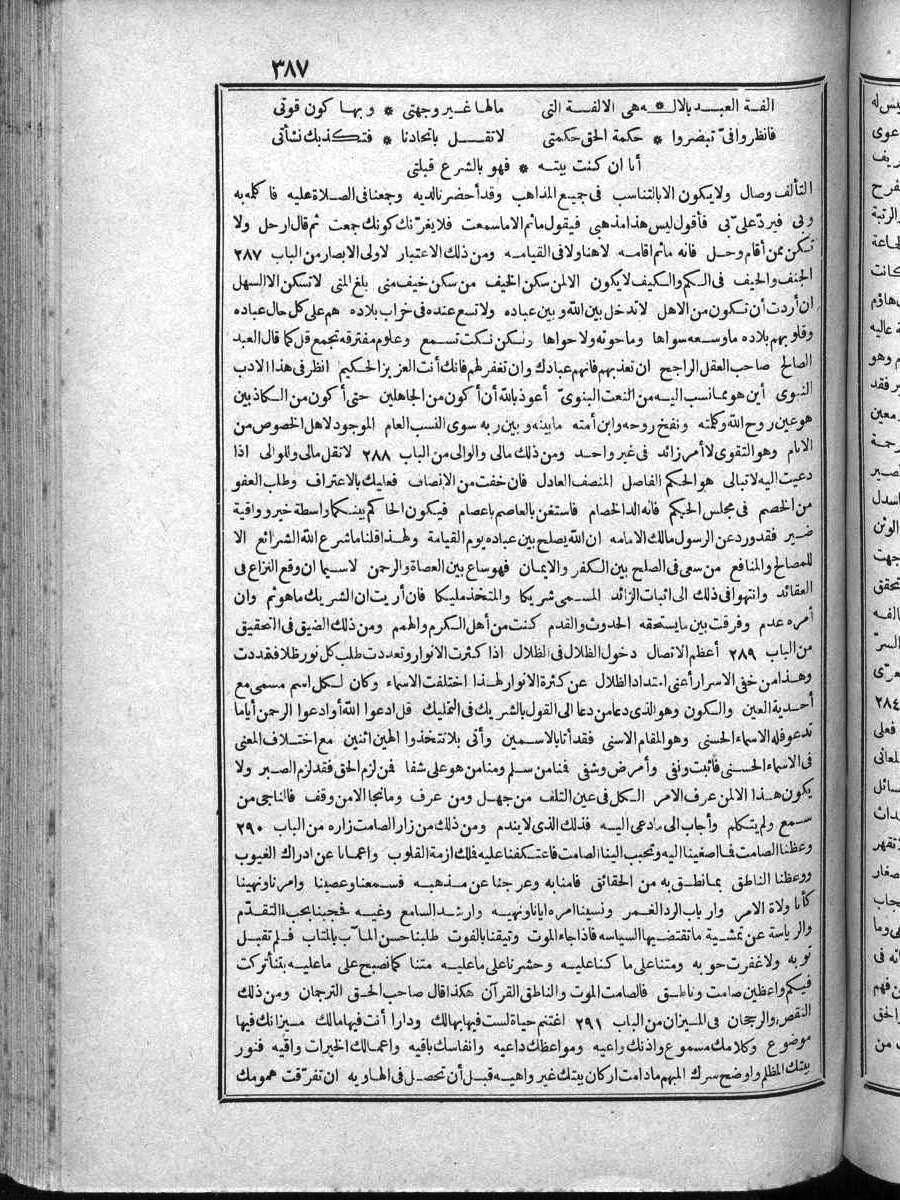 ٣٨٧
الفة العبد بالاله هى الالفة التى مالها غير وجهتى * وبها كون قوتى
فانظروا فىّ تبصروا * حكمة الحق حكمتى لا تقل باتحادنا * فتكذبك نشأتى
أنا ان كنت بيته * فهو بالشرع قبلتى
التألف وصال ولا يكون الا بالتناسب فى جميع المذاهب وقد أحضرنا لديه وجمعنا فى الصلاة عليه فا كله به
ولى فيردّ علىّ بى فأقول ليس هذا مذهبى فيقول ماثم الا ما سمعت فلا يغرّنك كونك جمعت ثم قال ارحل ولا
تكن ممن أقام وحل فانه ماثم اقامه لا هنا ولا فى القيامه ومن ذلك الاعتبار لاولى الابصار من الباب ٢٨٧
الجنف والحيف فى الكم والكيف لا يكون الا لمن سكن الخيف من سكن خيف منى بلغ المنى لا تسكن الا السهل
ان أردت أن تكون من الاهل لا تدخل بين الله وبين عباده ولا تسع عنده فى خراب بلاده هم على كل حال عباده
وقلوبهم بلاده ما وسعه سواها وما حوته ولا حواها ولكن نكت تسمع وعلوم مفترقه تجمع قل كما قال العبد
الصالح صاحب العقل الراجح ان تعذبهم فانهم عبادك وان تغفر لهم فانك أنت العزيز الحكيم انظر فى هذا الادب
النبوى أين هو مما نسب اليه من النعت البنوىّ أعوذ بالله أن أكون من الجاهلين حتى أكون من الكاذبين
هو عين روح الله وكلمته ونفخ روحه وابن أمته ما بينه وبين ربه سوى النسب العام الموجود لاهل الخصوص من
الانام وهو التقوى لا أمر زائد فى غير واحد ومن ذلك مالى والوالى من الباب ٢٨٨ لا تقل مالى وللوالى اذا
دعيت اليه لا تبالى هو الحكم الفاصل المنصف العادل فان خفت من الانصاف فعليك بالاعتراف وطلب العفو
من الخصم فى مجلس الحكم فانه الد الخصام فاستغن بالعاصم باعصام فيكون الحاكم بينكما واسطة خير وواقية
ضير فقد ورد عن الرسول مالك الامامه ان الله يصلح بين عباده يوم القيامة ولهذا قلنا ما شرع الله الشرائع الا
للمصالح والمنافع من سعى فى الصلح بين الكفر والايمان فهو ساع بين العصاة والرحمن لاسيما ان وقع النزاع فى
العقائد وانتهوا فى ذلك الى اثبات الزائد المسمى شريكا والمتخذ مليكا فان أريت ان الشريك ما هو ثم وان
أمره عدم وفرقت بين ما يستحقه الحدوث والقدم كنت من أهل الكرم والهمم ومن ذلك الضيق فى التحقيق
من الباب ٢٨٩ أعظم الاتصال دخول الظلال فى الظلال اذا كثرت الانوار وتعددت طلب كل نور ظلا فقددت
وهذا من خفى الاسرار أعنى امتداد الظلال عن كثرة الانوار لهذا اختلفت الاسماء وكان لكل اسم مسمى مع
أحدية العين والكون وهو الذى دعا من دعا الى القول بالشريك فى التمليك قل ادعوا الله أو ادعوا الرحمن أياما
تدعو فله الاسماء الحسنى وهو المقام الاسنى فقد أتا بالاسمين وأتى بلا تتخذوا الهين اثنين مع اختلاف المعنى
فى الاسماء الحسنى فاثبت ونفى وأمرض وشفى فمنا من سلم ومنا من هو على شفا فمن لزم الحق فقد لزم الصبر ولا
يكون هذا الا لمن عرف الامر الكل فى عين التلف من جهل ومن عرف وما نجا الا من وقف فالناجى من
سمع ولم يتكلم وأجاب الى ما دعى اليه فذلك الذى لا يندم ومن ذلك من زار الصامت زاره من الباب ٢٩٠
وعظنا الصامت فما اصغينا اليه وتحبب الينا الصامت فاعتكفنا عليه فلك ازمة القلوب واعمانا عن ادراك الغيوب
ووعظنا الناطق بما نطق به من الحقائق فامنا به وعرجنا عن مذهبه فسمعنا وعصينا وامرنا ونهينا
كأنا ولاة الامر وارباب الرد الغمر ونسينا امره ايانا ونهيه وارشد السامع وغيه فحجبنا بحب التقدّم
والرياسة عن تمشية ما تقتضيها السياسه فاذا جاء الموت وتيقنا بالفوت طلبنا حسن المآب بالمتاب فلم تقبل
توبه ولا غفرت حوبه ومتنا على ما كنا عليه وحشرنا على ما عليه متنا كما نصبح على ما عليه بتنا تركت
فيكم واعظين صامت وناطق فالصامت الموت والناطق القرآن هكذا قال صاحب الحق الترجمان ومن ذلك
النقص والرجحان فى الميزان من الباب ٢٩١ اغتنم حياة لست فيها بهالك ودارا أنت فيها مالك ميزانك فيها
موضوع وكلامك مسموع واذنك واعيه ومواعظك داعيه وانفاسك باقيه واعمالك الخيرات واقيه فنور
بيتك المظلم واوضح سرك المبهم ما دامت اركان بيتك غير واهيه قبل أن تحصل فى الهاويه ان تفرّقت همومك